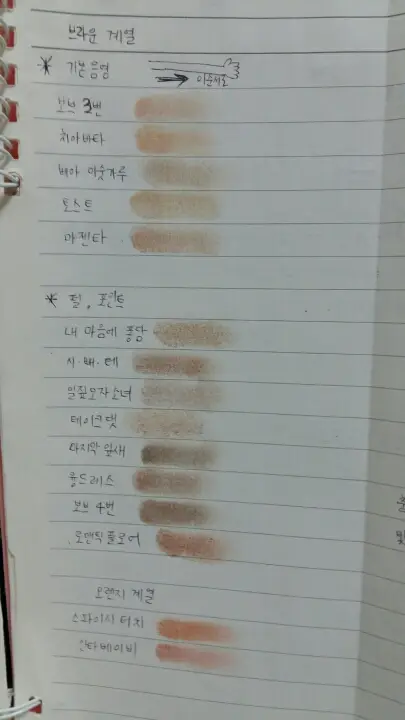 브라운 계열
* 기본음영
이순서로
보브 3번
치아바타
베이 이웃가루
토스트
마젠타
* 펄, 포인트
내 마음에 퐁당
시·베·테
밀짚모자소녀
테이크댓
마지막 잎새
롱드레스
보브 4번
로맨틱플로어
오렌지 계열
스파이시 터치
산타베이비